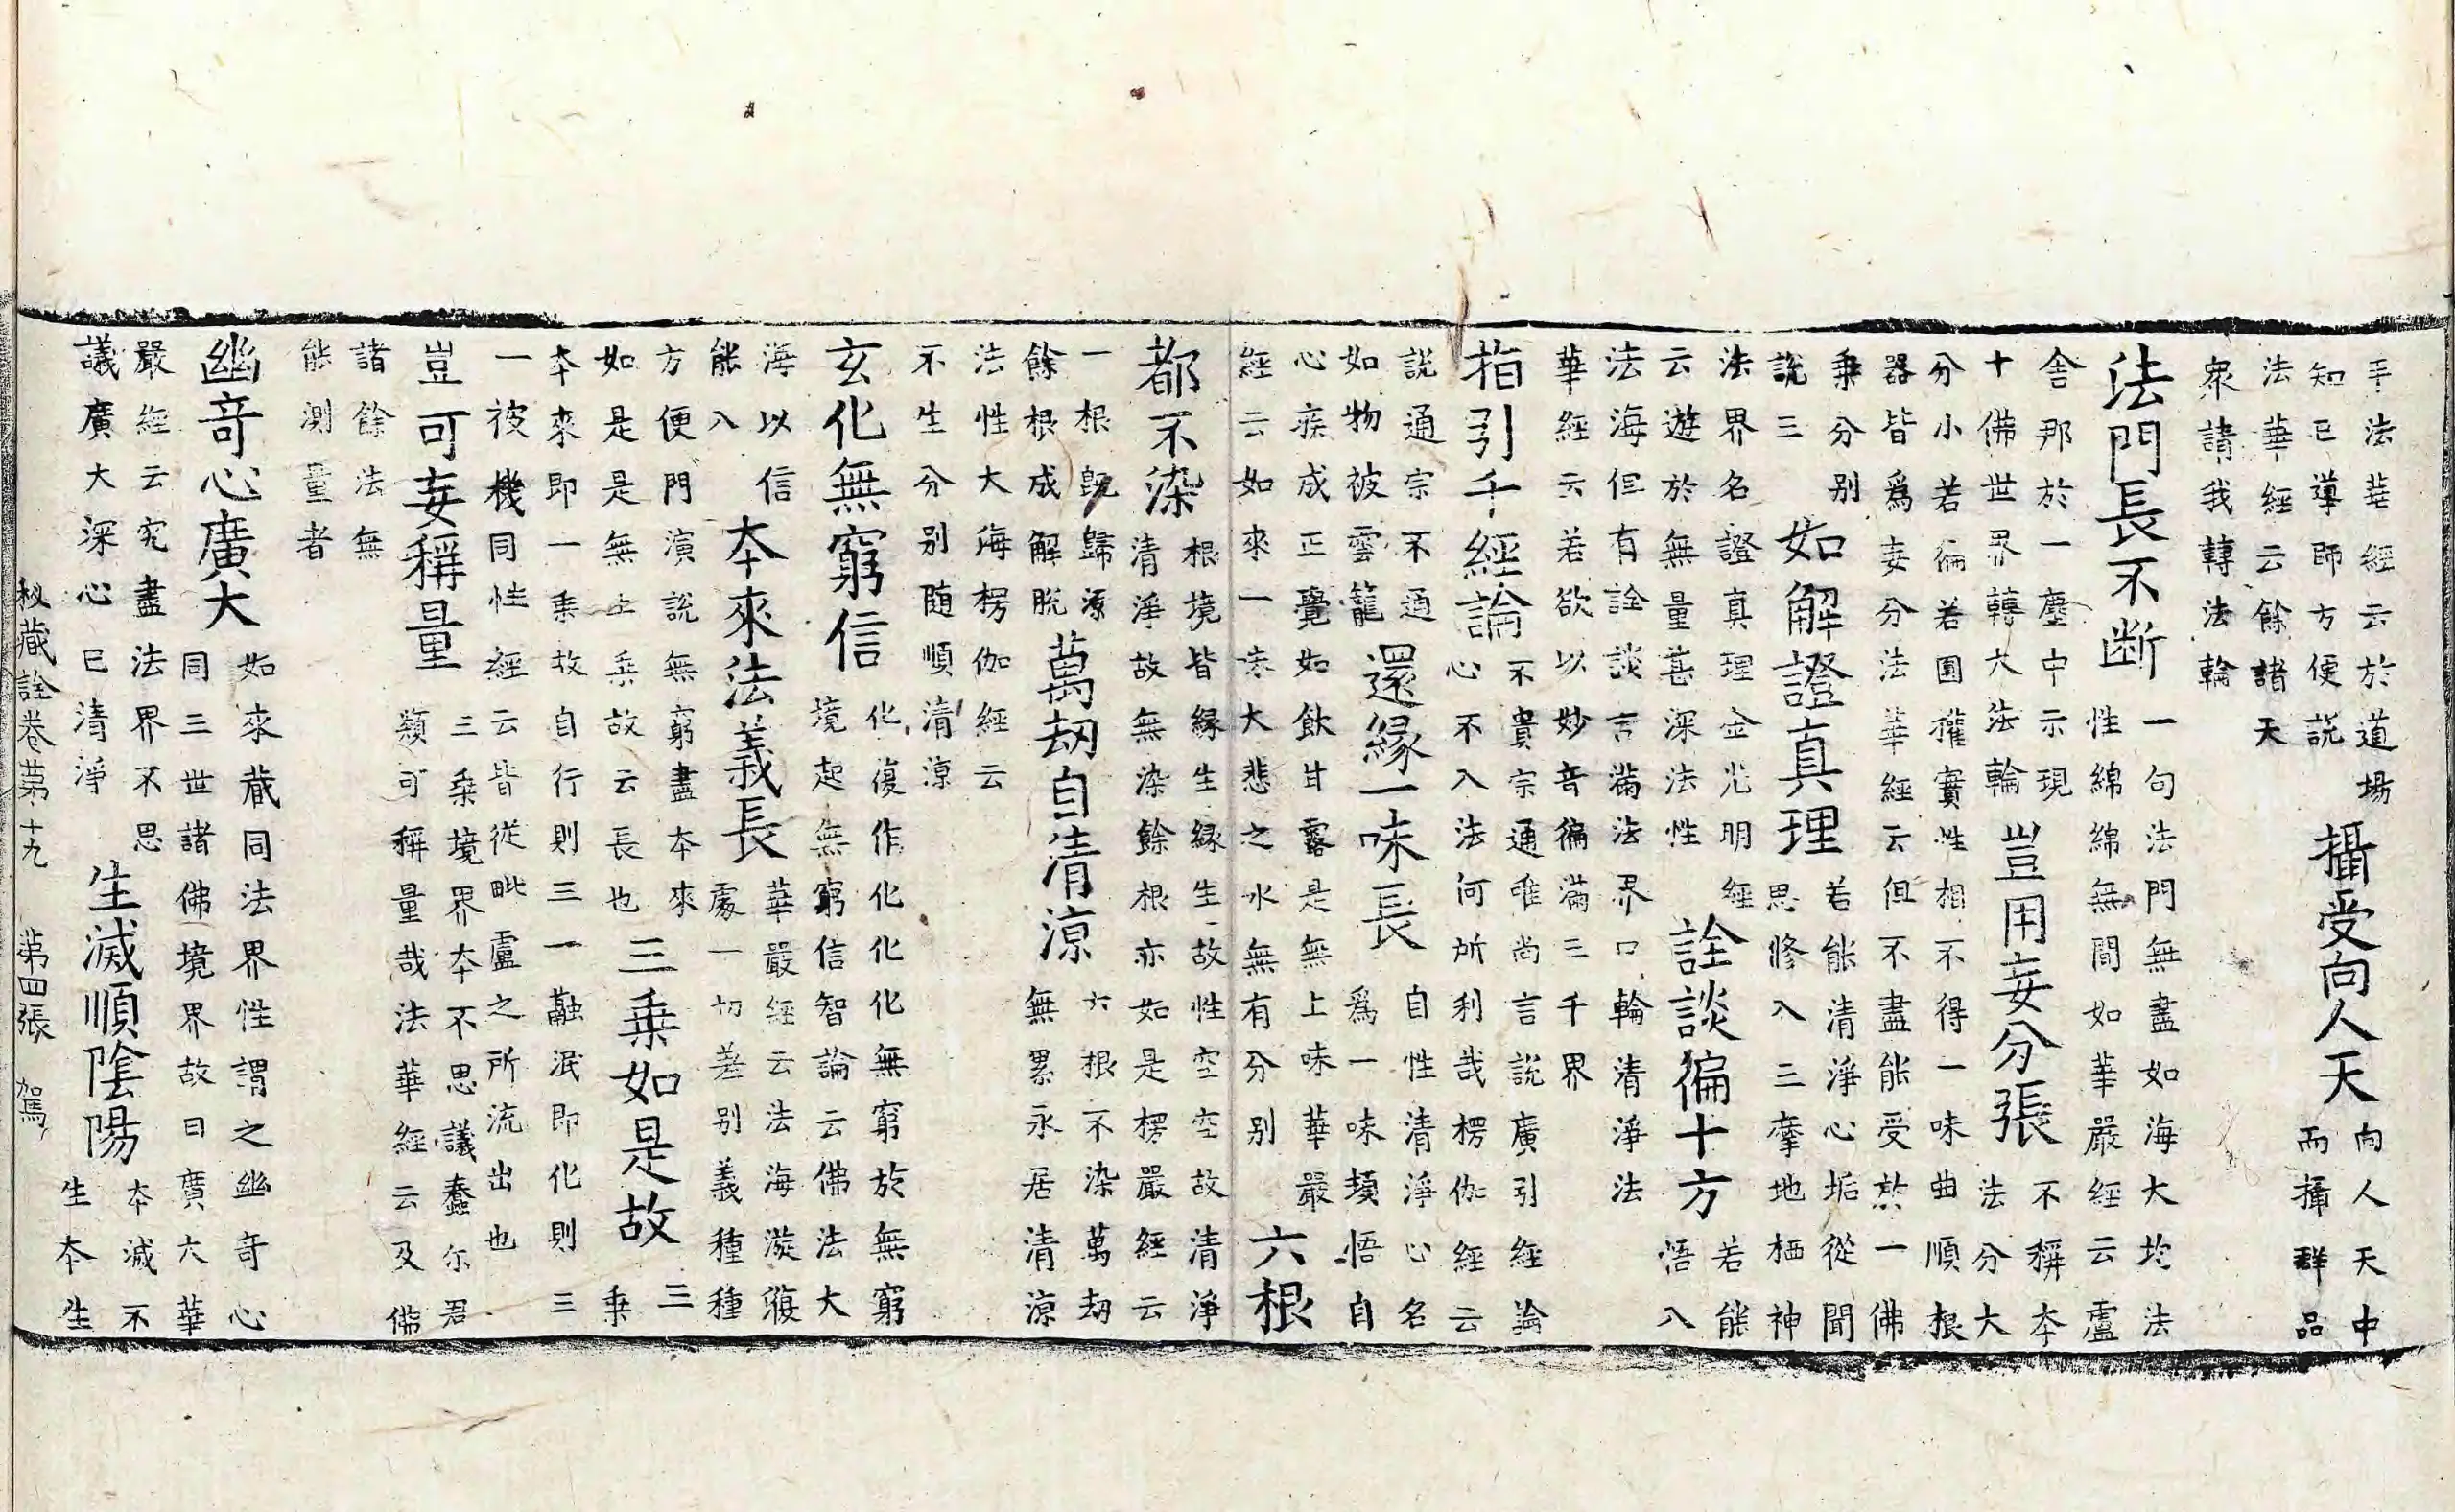 手法華經云於道場
知已導師方便說
攝受向人天
向人天中
而攝群品
法華經云餘諸天
衆請我轉法輪
法門長不断
一句法門無盡如海大均法
性綿綿無間如華嚴經云盧
舍那於一塵中示現
十佛世界轉大法輪
豈用妄分張
不稱本
法分大
分小若徧若圓權實性相不得一味曲順根
器皆爲妄分法華經云但不盡能受於一佛
乗分别
說三
如解證真理
若能清淨心垢從聞
思修入三摩地栖神
法界名證真理金光明經
云遊於無量甚深法性
詮談徧十方
若能
悟入
法海但有詮談言滿法界口輪清淨法
華經云若欲以妙音徧滿三千界
指引千經論
不貴宗通唯尚言說廣引經論
心不入法何所利哉楞伽經云
說通宗不通
如物被雲籠
還緣一味長
自性清淨心名
爲一味頓悟自
心疾成正覺如飲甘露是無上味華嚴
經云如來一味大悲之水無有分别
六根
都不染
根境皆緣生緣生故性空空故清淨
清淨故無染餘根亦如是楞嚴經云
一根旣歸源
餘根成解脫
萬劫自清涼
六根不染萬劫
無累永居清涼
法性大海楞伽經云
不生分别随順清涼
玄化無窮信
化復作化化化無窮於無窮
境起無窮信智論云佛法大
海以信
能入
本來法義長
華嚴經云法海漩澓
處一切差别義種種
方便門演說無窮盡本來
如是是無上乗故云長也
三乗如是故
三
乗
本來即一乗故自行則三一融泯即化則三
一被機同性經云皆從毗盧之所流出也
豈可妄稱量
三乗境界本不思議蠢尒君
類可稱量哉法華經云及佛
諸餘法無
能測量者
幽竒心廣大
如來藏同法界性謂之幽竒心
同三世諸佛境界故曰廣大華
嚴經云究盡法界不思
議廣大深心已清淨
生滅順陰陽
本滅不
生本生
秘藏詮卷第十九 第四張 駕